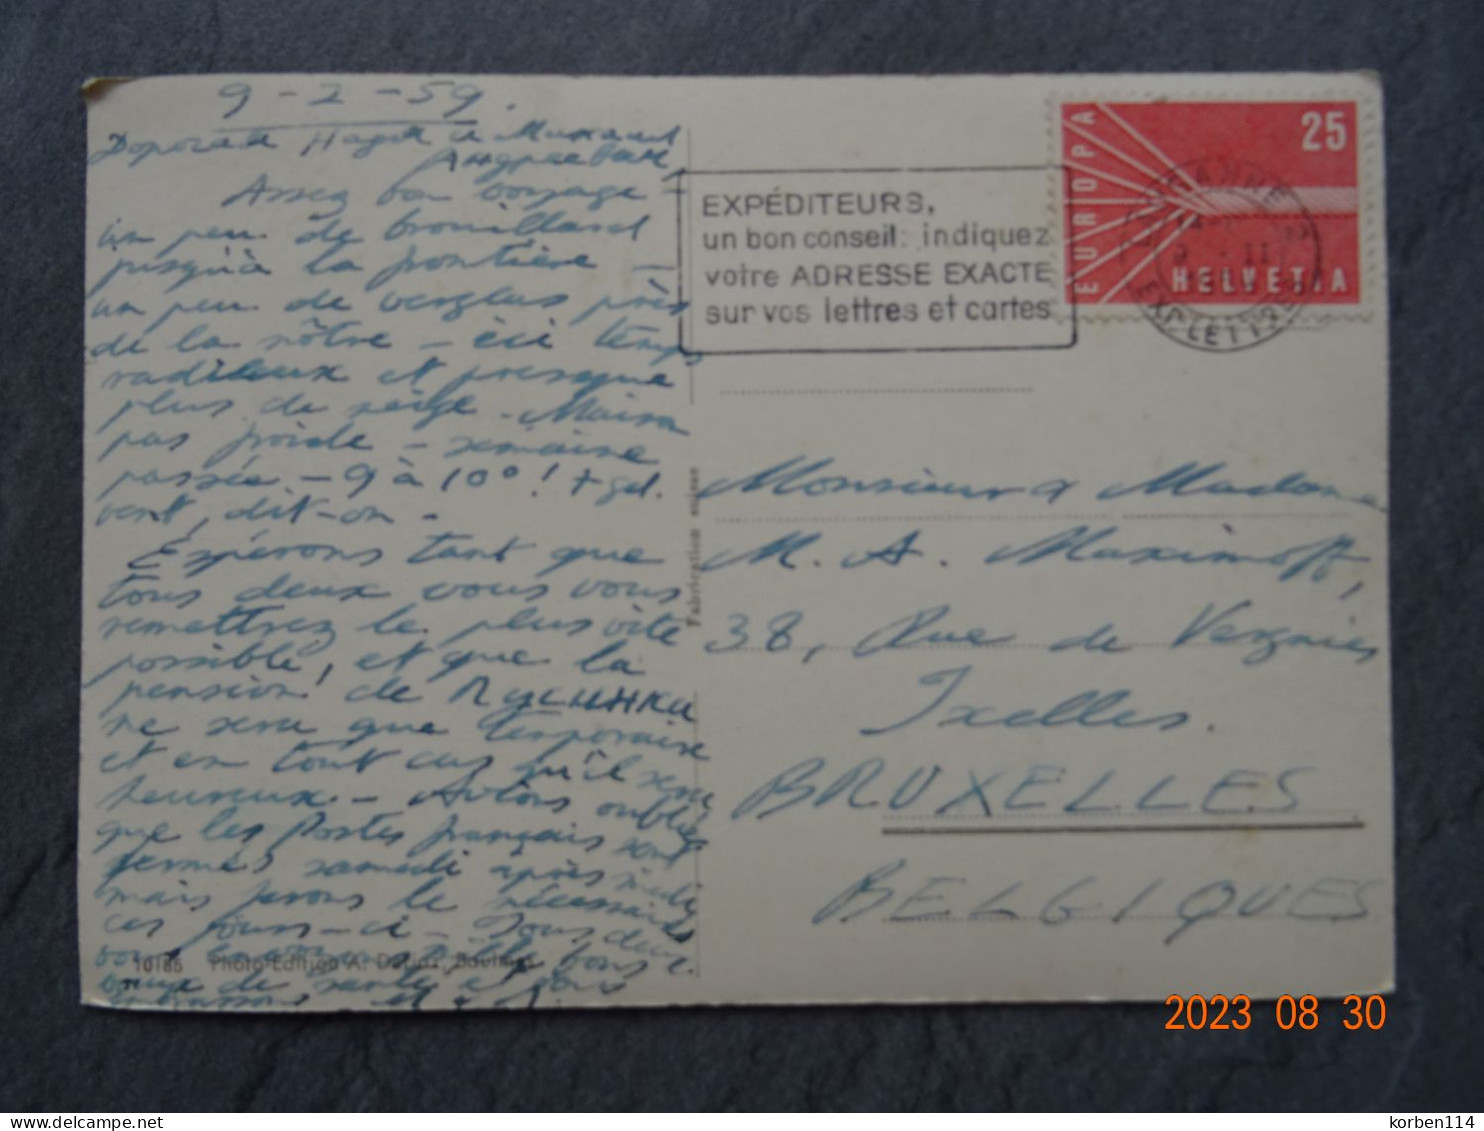 9-2-59.
Дорогая Надя и Михаил
Андреевич,
Assez bon voyage -
un peu de brouillard
jusqu'à la frontière -
un peu de verglas près
de la nôtre - ici temps
radieux et presque
plus de neige - Maison
pas froide - semaine
passée - 9 à 10° ! +
vent, dit-on -
Espérons tant que
tous deux vous vous
remettrez le plus vite
possible, et que la
pension de
ne sera que temporaire
et en tout cas qu'il sera
heureux. - Avions oublié
que les Postes français sont
fermés samedi après midi,
mais ferons le nécessaire
ces jours-ci - Tous deux
vous
de santé et vous
embrassons
10186 Photo-Edition A.
Fabrication suisse
EXPÉDITEURS,
un bon conseil: indiquez
votre ADRESSE EXACTE
sur vos lettres et cartes
EUROPA
25
HELVETIA
EXP. LETTRES
Monsieur & Madame
M. A. Maximoff,
38, Rue de Vergnies
Ixelles.
BRUXELLES
BELGIQUES
2023 08 30
korben114